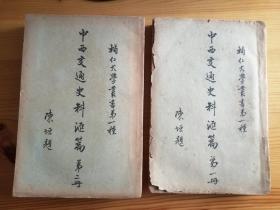 輔仁大學叢書第一種
中西交通史料滙篇 第二冊
陳垣題
輔仁大學叢書第一種
中西交通史料滙篇 第一冊
陳垣題